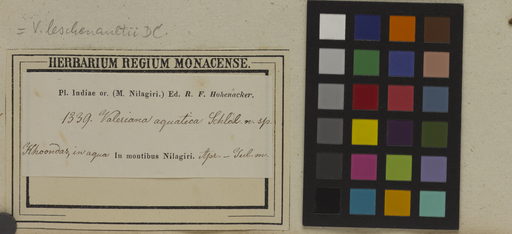 = V. leschenaultii DC.
HERBARIUM REGIUM MONACENSE.
Pl. Indiae or. (M. Nilagiri.) Ed. R. F. Hohenacker.
1339. Valeriana aquatica Schltd. n. sp.
Khoondas, in aqua In montibus Nilagiri. Apr. – Jul. m.